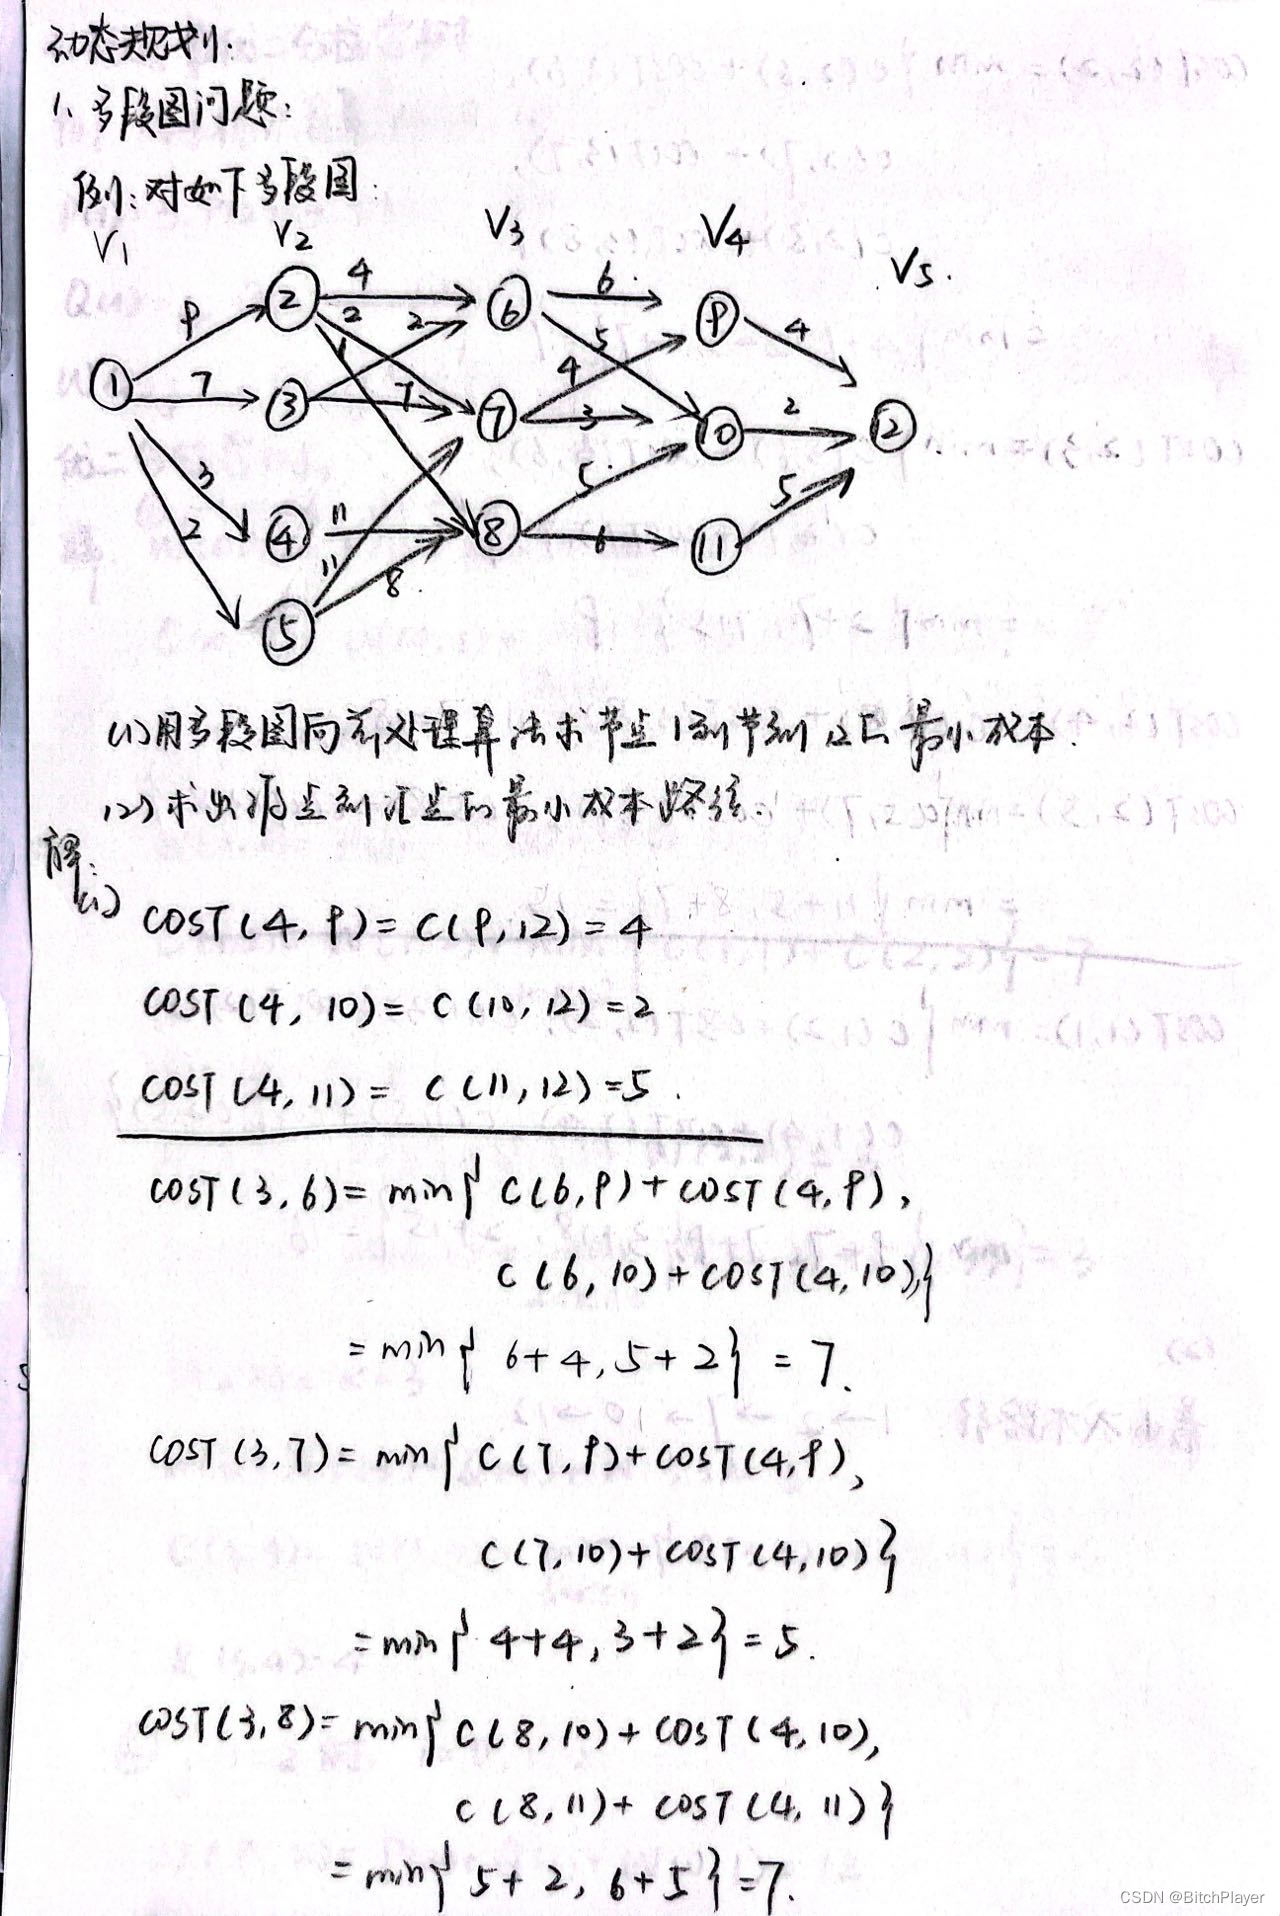 动态规划.
1、多段图问题:
例:对如下多段图:
V1 V2 V3 V4 V5.
9 7 3 2
4 2 1 2 7 11 11 8
6 5 4 3 5 6
4 2 5
1 2 3 4 5 6 7 8 9 10 11 12
(1)用多段图向前处理算法求节点1到节到12的最小成本.
(2)求出源点到汇点的最小成本路径.
解:
(1)
COST(4,9)=C(9,12)=4
COST(4,10)=C(10,12)=2
COST(4,11)=C(11,12)=5.
COST(3,6)=min{C(6,9)+COST(4,9),
C(6,10)+COST(4,10)}
=min{6+4,5+2}=7.
COST(3,7)=min{C(7,9)+COST(4,9),
C(7,10)+COST(4,10)}
=min{4+4,3+2}=5.
COST(3,8)=min{C(8,10)+COST(4,10),
C(8,11)+COST(4,11)}
=min{5+2,6+5}=7.
CSDN @BitchPlayer